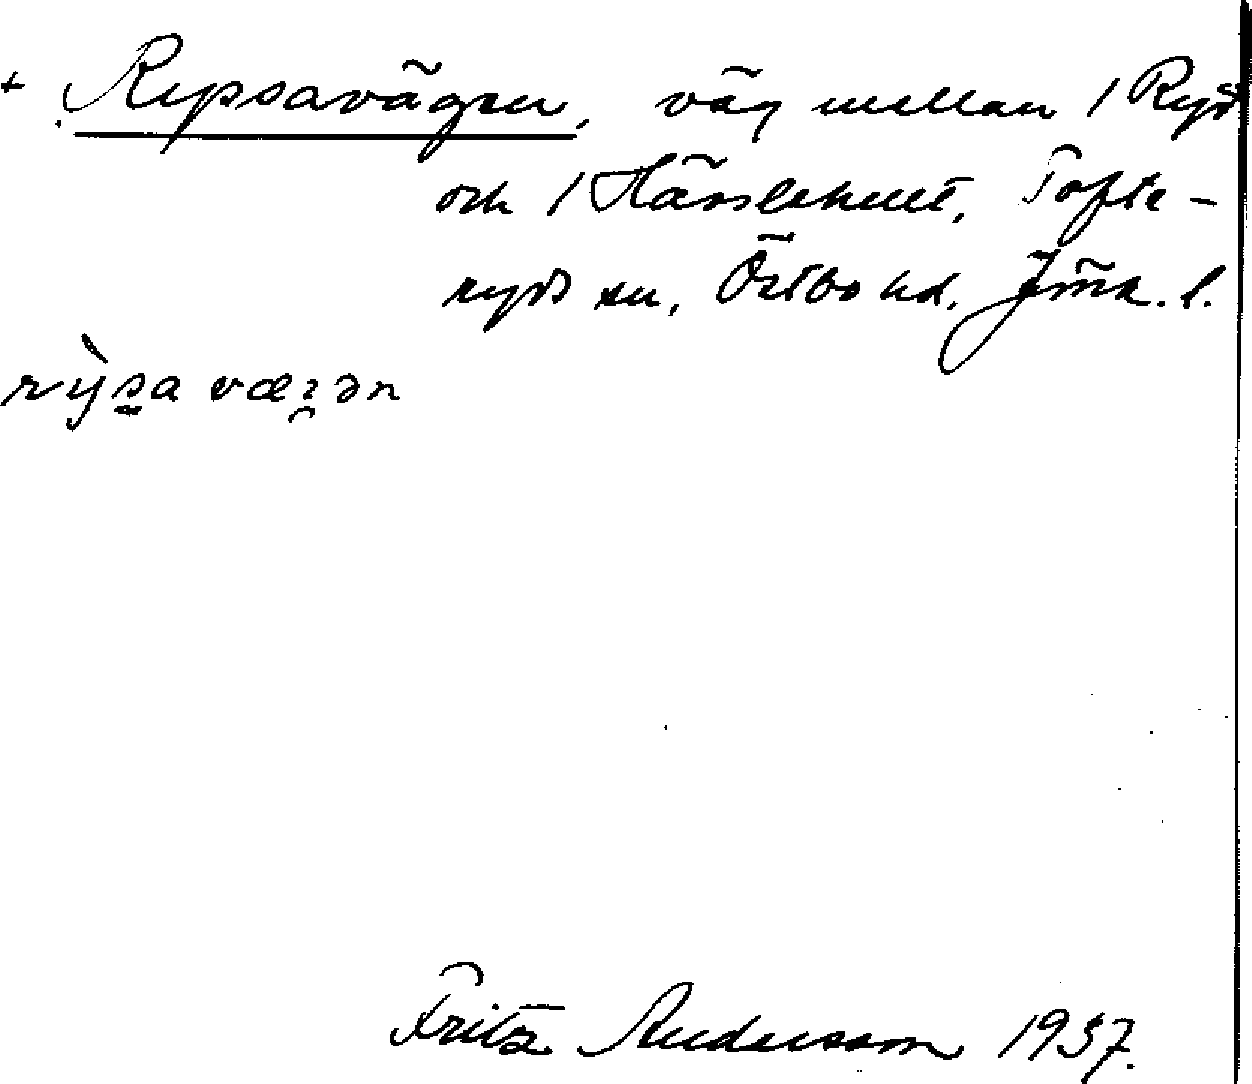 + Rypsavägen, väg mellan / Ryd
och / Hässlehult, Tofte-
ryds sn, Östbo hd, Jönk. l.
rỳsa væʒən
Fritz Andersson 1937.